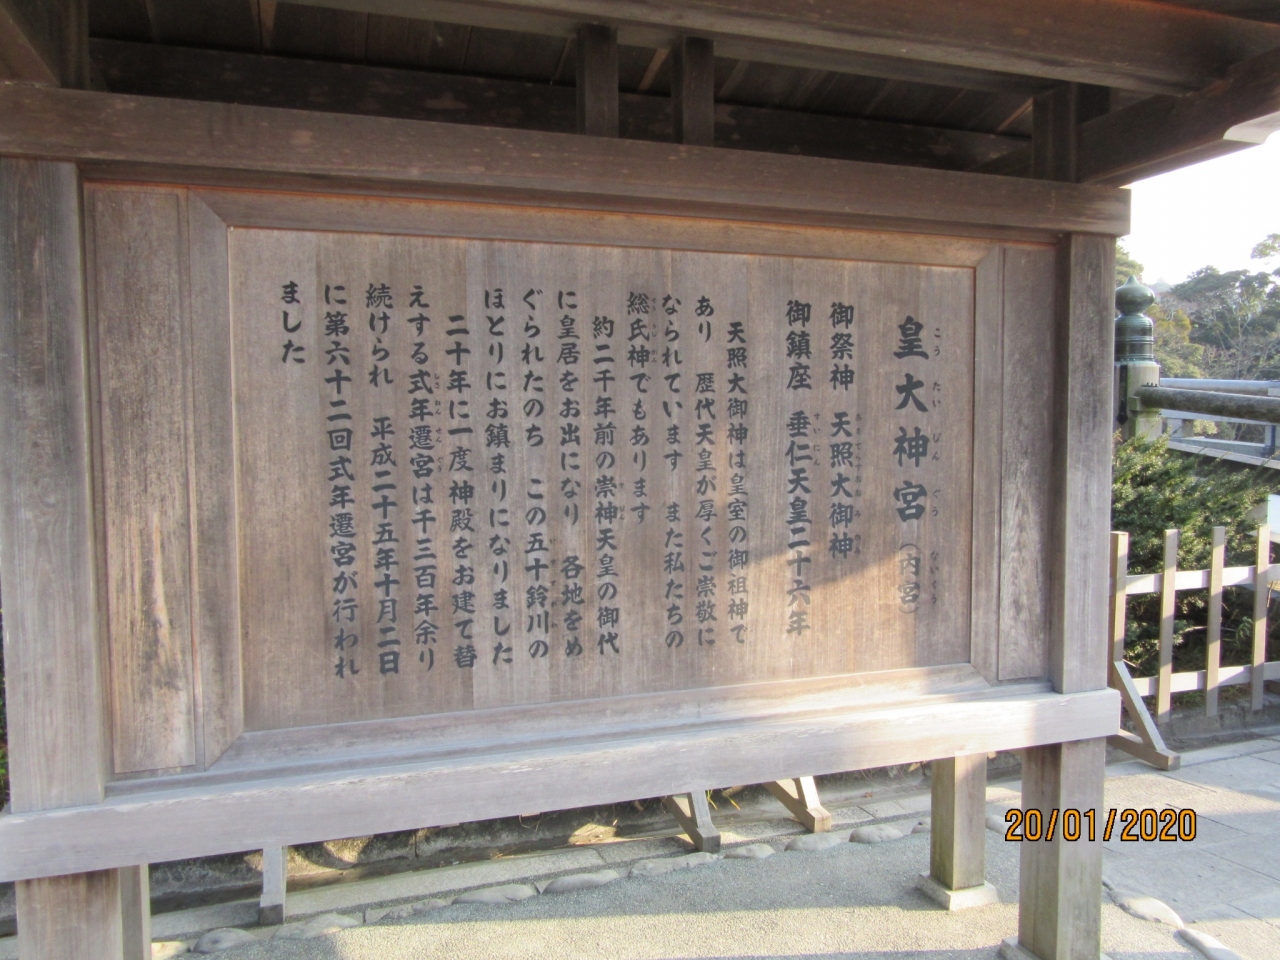 皇大神宮（内宮）
御祭神　天照大御神
御鎮座　垂仁天皇二十六年
天照大御神は皇室の御祖神で
あり　歴代天皇が厚くご崇敬に
なられています　また私たちの
総氏神でもあります
約二千年前の崇神天皇の御代
に皇居をお出になり　各地をめ
ぐられたのち　この五十鈴川の
ほとりにお鎮まりになりました
二十年に一度神殿をお建て替
えする式年遷宮は千三百年余り
続けられ　平成二十五年十月二日
に第六十二回式年遷宮が行われ
ました
20/01/2020